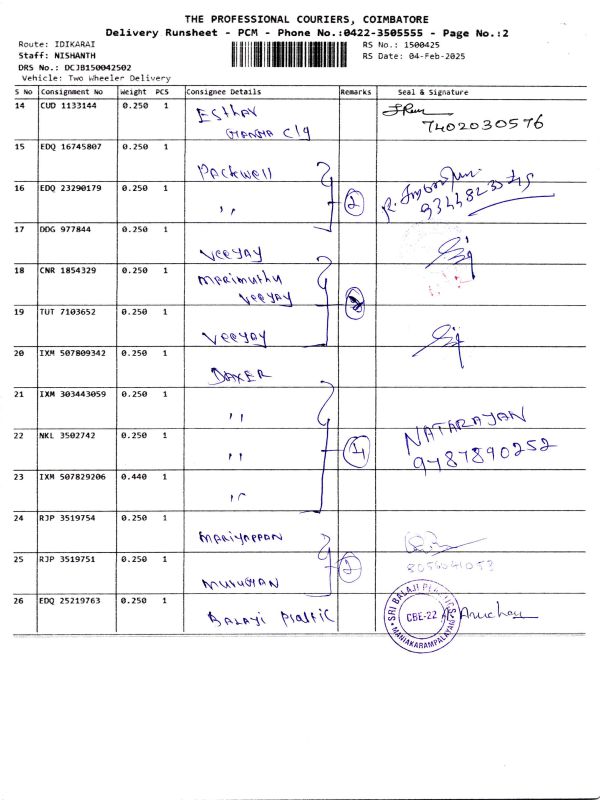 THE PROFESSIONAL COURIERS, COIMBATORE
Delivery Runsheet - PCM - Phone No.:0422-3505555 - Page No.:2
Route: IDIKARAI RS No.: 1500425
Staff: NISHANTH RS Date: 04-Feb-2025
DRS No.: DCJB150042502
Vehicle: Two Wheeler Delivery
S No Consignment No Weight PCS Consignee Details Remarks Seal & Signature
14 CUD 1133144 0.250 1 Esthar
7402030576
15 EDQ 16745807 0.250 1 Packwell
16 EDQ 23290179 0.250 1 ,, 2
17 DDG 977844 0.250 1 Veejay
18 CNR 1854329 0.250 1 Marimuthu
Veejay
19 TUT 7103652 0.250 1 Veejay
20 IXM 507809342 0.250 1 DAXER
21 IXM 303443059 0.250 1 ,,
22 NKL 3502742 0.250 1 ,, 4 NATARAJAN
9787890252
23 IXM 507829206 0.440 1 ,,
24 RJP 3519754 0.250 1 MARIYAPPAN
25 RJP 3519751 0.250 1 MURUGAN 2
26 EDQ 25219763 0.250 1 BALAJI Plastic
SRI BALAJI PLASTICS
CBE-22
MANIAKARAMPALAYAM